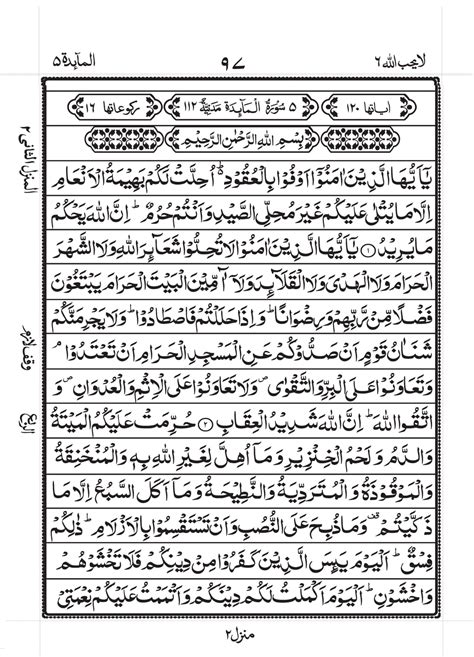 لا يحب الله ٦
٩٧
المآيدة ٥
اٰیاتھا ١٢٠
٥ سُوْرَةُ الْمَآئِدَةِ مَدَنِيَّةٌ ١١٢
ركوعاتها ١٦
بِسْمِ اللهِ الرَّحْمٰنِ الرَّحِيْمِ
يٰۤاَيُّهَا الَّذِيْنَ اٰمَنُوْۤا اَوْفُوْا بِالْعُقُوْدِ ؕ اُحِلَّتْ لَكُمْ بَهِيْمَةُ الْاَنْعَامِ
اِلَّا مَا يُتْلٰى عَلَيْكُمْ غَيْرَ مُحِلِّى الصَّيْدِ وَاَنْتُمْ حُرُمٌ ؕ اِنَّ اللهَ يَحْكُمُ
مَا يُرِيْدُ ﴿١﴾ يٰۤاَيُّهَا الَّذِيْنَ اٰمَنُوْا لَا تُحِلُّوْا شَعَآئِرَ اللهِ وَلَا الشَّهْرَ
الْحَرَامَ وَلَا الْهَدْىَ وَلَا الْقَلَآئِدَ وَلَاۤ آٰمِّيْنَ الْبَيْتَ الْحَرَامَ يَبْتَغُوْنَ
فَضْلًا مِّنْ رَّبِّهِمْ وَرِضْوَانًا ؕ وَاِذَا حَلَلْتُمْ فَاصْطَادُوْا ؕ وَلَا يَجْرِمَنَّكُمْ
شَنَاٰنُ قَوْمٍ اَنْ صَدُّوْكُمْ عَنِ الْمَسْجِدِ الْحَرَامِ اَنْ تَعْتَدُوْا ۘ
وَتَعَاوَنُوْا عَلَى الْبِرِّ وَالتَّقْوٰى ۪ وَلَا تَعَاوَنُوْا عَلَى الْاِثْمِ وَالْعُدْوَانِ ۪ وَ
اتَّقُوا اللهَ ؕ اِنَّ اللهَ شَدِيْدُ الْعِقَابِ ﴿٢﴾ حُرِّمَتْ عَلَيْكُمُ الْمَيْتَةُ
وَالدَّمُ وَلَحْمُ الْخِنْزِيْرِ وَمَاۤ اُهِلَّ لِغَيْرِ اللهِ بِهٖ وَالْمُنْخَنِقَةُ
وَالْمَوْقُوْذَةُ وَالْمُتَرَدِّيَةُ وَالنَّطِيْحَةُ وَمَاۤ اَكَلَ السَّبُعُ اِلَّا مَا
ذَكَّيْتُمْ ۫ وَمَا ذُبِحَ عَلَى النُّصُبِ وَاَنْ تَسْتَقْسِمُوْا بِالْاَزْلَامِ ؕ ذٰلِكُمْ
فِسْقٌ ؕ اَلْيَوْمَ يَئِسَ الَّذِيْنَ كَفَرُوْا مِنْ دِيْنِكُمْ فَلَا تَخْشَوْهُمْ
وَاخْشَوْنِ ؕ اَلْيَوْمَ اَكْمَلْتُ لَكُمْ دِيْنَكُمْ وَاَتْمَمْتُ عَلَيْكُمْ نِعْمَتِىْ
المنزل الثانی ٢
وقف لازم
الربع
منزل ٢